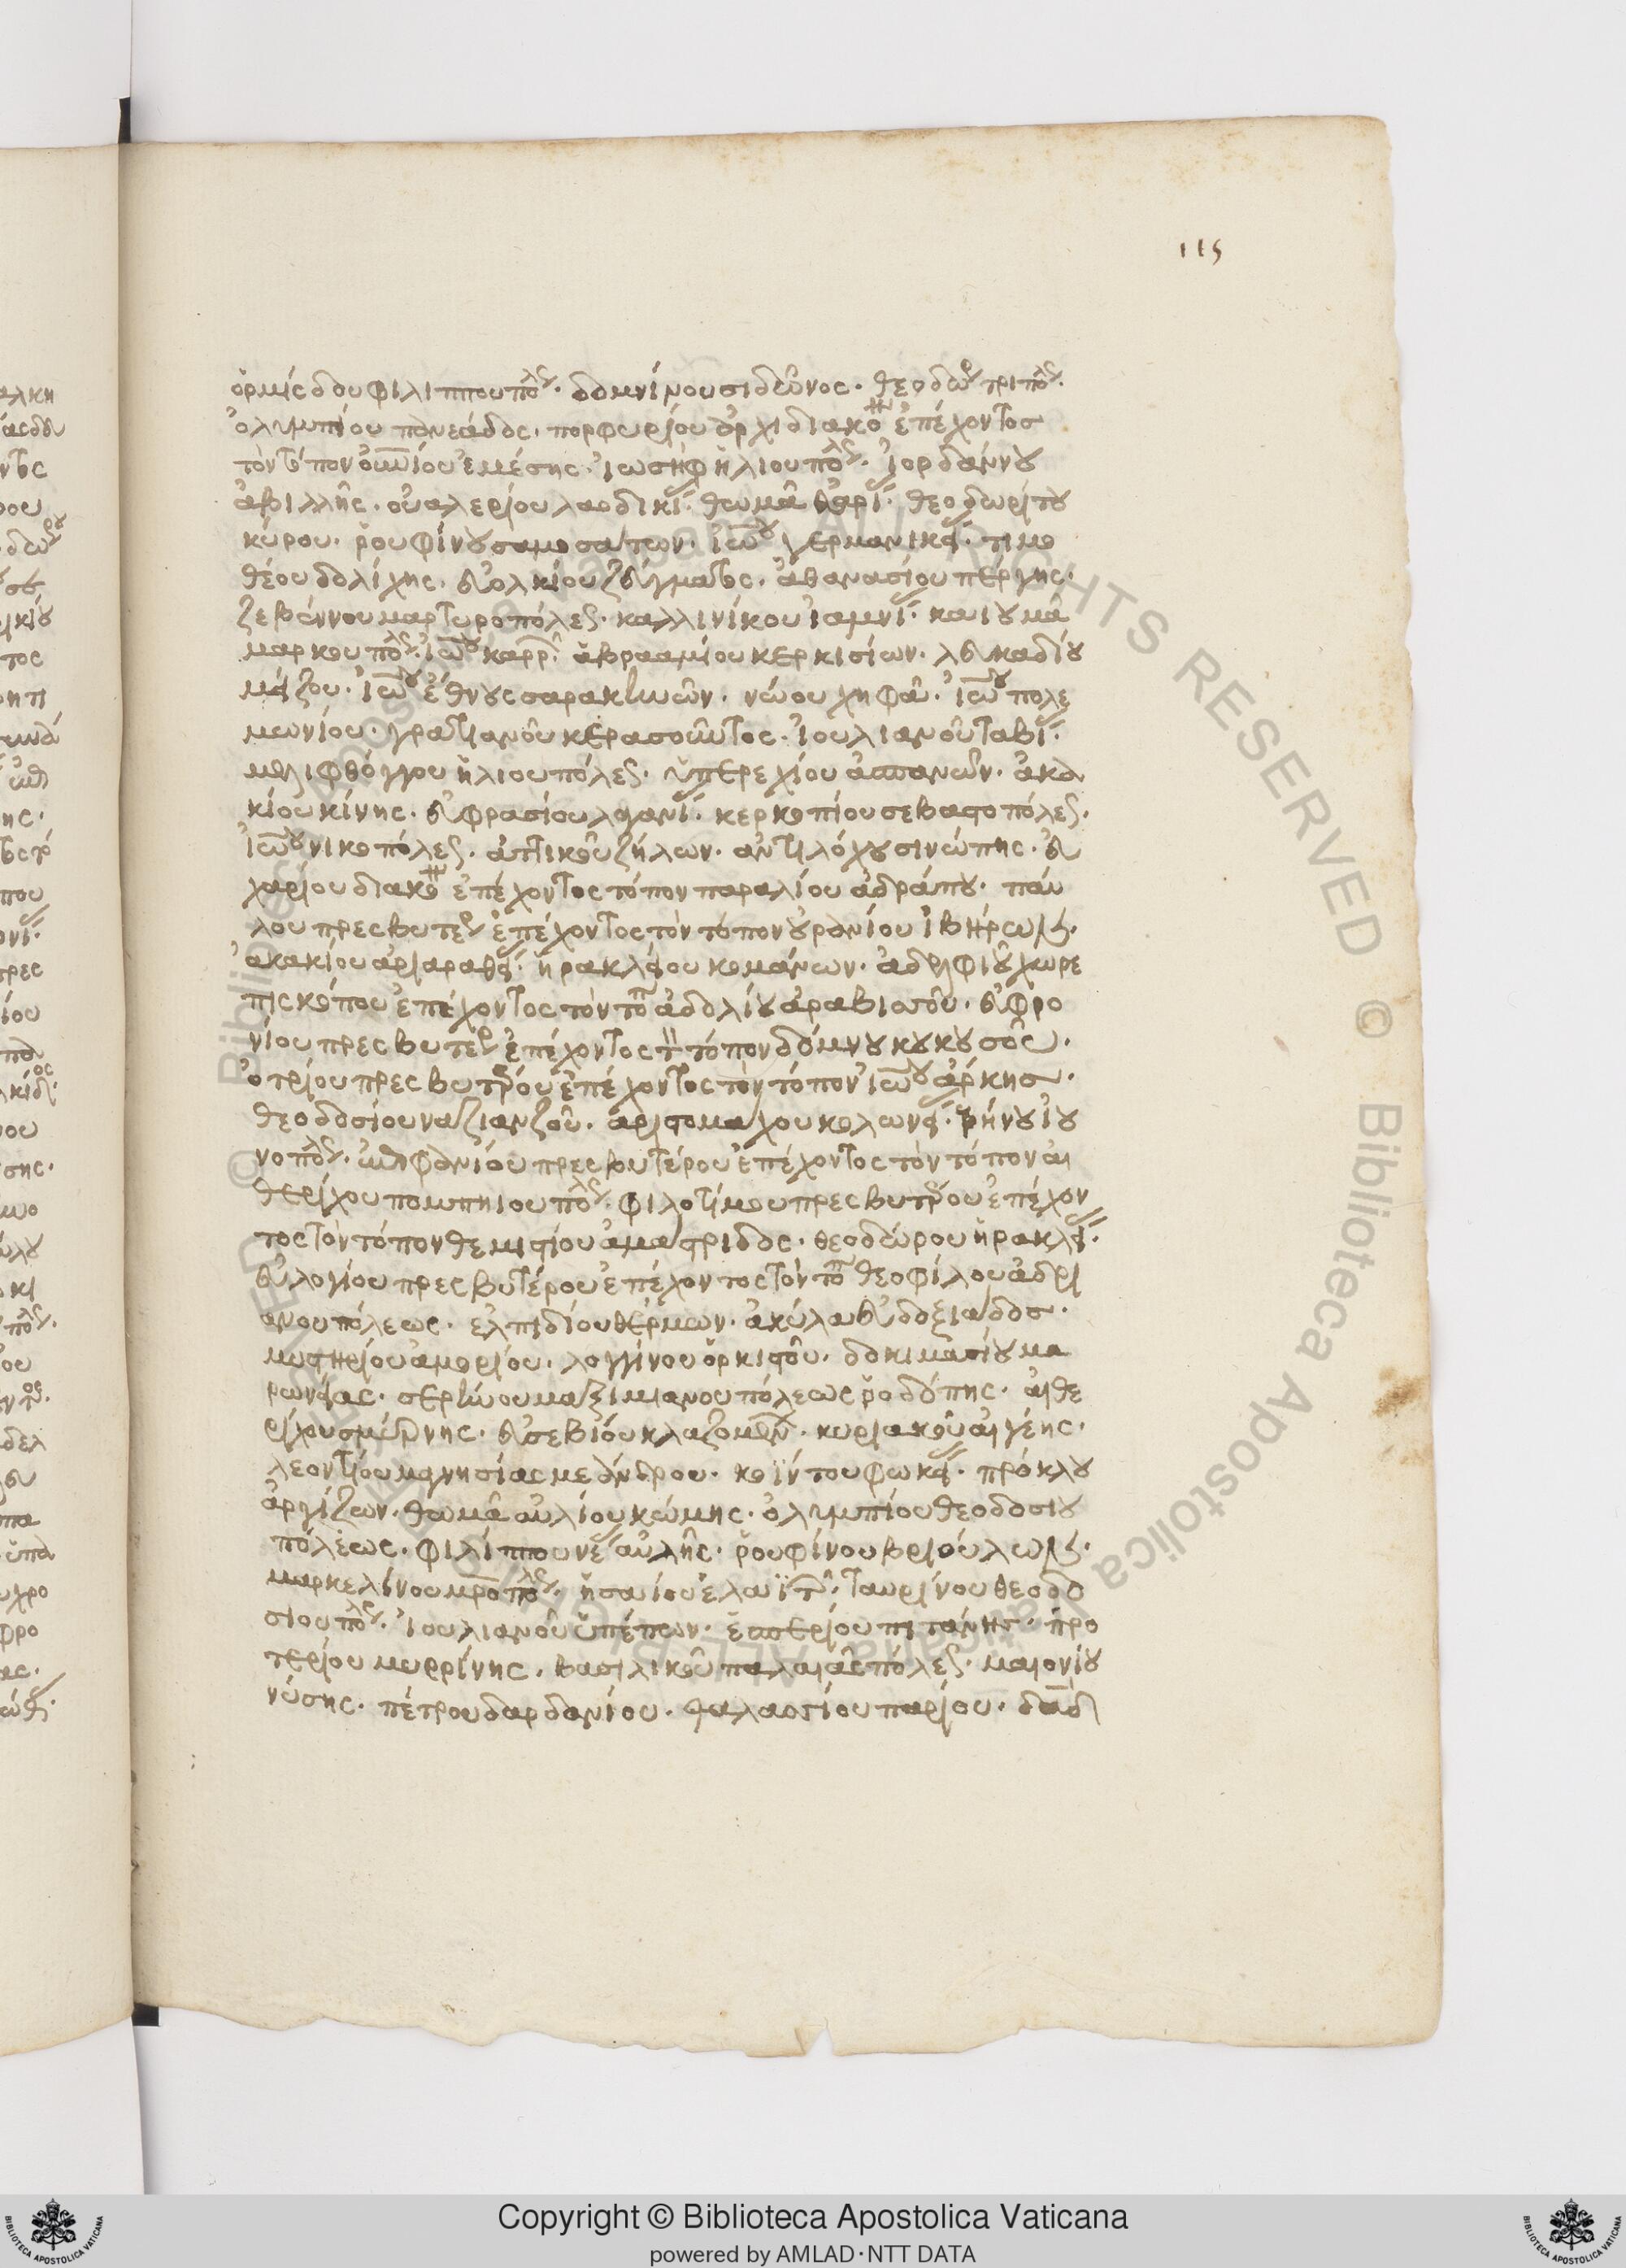 115
ὁρμίσδου φιλιππουπόλεως. δομνίνου σιδῶνος. θεοδώρου τριπόλεως.
ὀλυμπίου πανεάδος. πορφυρίου ἀρχιδιακόνου ἐπέχοντος
τὸν τόπον οὐρανίου ἐμέσης. ἰωσὴφ ἡλιουπόλεως. ἰορδάννου
ἀβίλλης. οὐαλερίου λαοδικείας. θωμᾶ θεοδωρίτου
κύρου. ῥουφίνου σαμοσάτων. ἰωάννου γερμανικείας. τιμο
θέου δολίχης. εὐολκίου ζεύγματος. ἀθανασίου πέρρης.
ζεβέννου μαρτυροπόλεως. καλλινίκου καϊουμᾶ
μαρκουπόλεως. ἰωάννου καρρῶν. ἀβρααμίου κερκισίων.
ἰωάννου ἔθνους σαρακηνῶν. νώου κηφᾶ. ἰωάννου πολε
μωνίου. γρατιανοῦ κερασοῦντος. ἰουλιανοῦ ταβίας.
μελιφθόγγου ἡλιουπόλεως. ὑπερεχίου ἀππανῶν. ἀκα
κίου κίνης. εὐφρασίου λαγανίας. κερκοπίου σεβαστοπόλεως.
ἰωάννου νικοπόλεως. ἀττικοῦ ζήλων. ἀντιλόχου σινώπης. εὐ
χαρίου διακόνου ἐπέχοντος τόπον παραλίου ἀδράπου. παύ
λου πρεσβυτέρου ἐπέχοντος τὸν τόπον οὐρανίου ἰβήρων.
ἀκακίου ἀριαραθείας. ἡρακλείου κομάνων. ἀδελφίου χωρε
πισκόπου ἐπέχοντος τὸν τόπον ἀδολίου ἀραβισσοῦ. εὐφρο
νίου πρεσβυτέρου ἐπέχοντος τὸν τόπον δόμνου κουκουσοῦ.
ὀτρίου πρεσβυτέρου ἐπέχοντος τὸν τόπον ἰωάννου ἄρκης.
θεοδοσίου ναζιανζοῦ. ἀριστομάχου κολωνείας. ῥήνου ἰου
νοπόλεως. ἐπιφανίου πρεσβυτέρου ἐπέχοντος τὸν τόπον αἰ
θερίχου πομπηιουπόλεως. φιλοτίμου πρεσβυτέρου ἐπέχον
τος τὸν τόπον θεμιστίου ἀμάστριδος. θεοδώρου ἡρακλείας.
εὐλογίου πρεσβυτέρου ἐπέχοντος τὸν τόπον θεοφίλου ἀδρι
ανουπόλεως. ἐλπιδίου θέρμων. ἀκύλα εὐδοξιάδος.
μυστηρίου ἀμορίου. λογγίνου ὀρκιστοῦ. δοκιμασίου μα
ρωνείας. σερήνου μαξιμιανουπόλεως ῥοδόπης. αἰθε
ρίχου σμύρνης. εὐσεβίου κλαζομενῶν. κυριακοῦ αἰγέης.
λεοντίου μαγνησίας μεάνδρου. κοΐντου φωκείας. πρόκλου
ἀργίζων. θωμᾶ αὐλίου κώμης. ὀλυμπίου θεοδοσιου
πόλεως. φιλίππου νέας αὐλῆς. ῥουφίνου βριούλων.
μαρκελίνου μητροπόλεως. ἡσαίου ἐλαΐτων. ταυρίνου θεοδο
σιουπόλεως. ἰουλιανοῦ ὑπέπων. ἑσπερίου πιτάνης. προ
τερίου μυρρίνης. βασιλικοῦ παλαιᾶς πόλεως. μαιονίου
νύσης. πέτρου δαρδανίου. θαλασσίου παρίου. δαυίδ
Copyright © Biblioteca Apostolica Vaticana
powered by AMLAD·NTT DATA